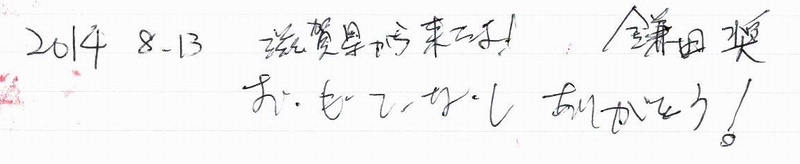 2014 8-13 滋賀県から来たよ! 鎌田 奨
お・も・て・な・し ありがとう!